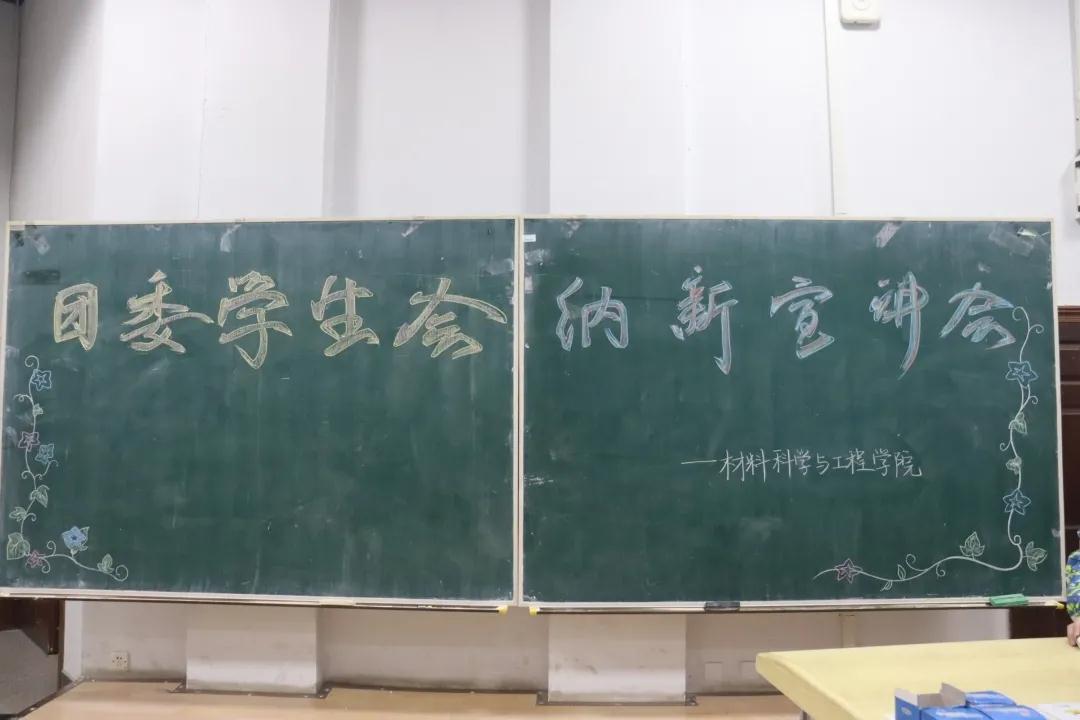 团委学生会 纳新宣讲会
—材料科学与工程学院